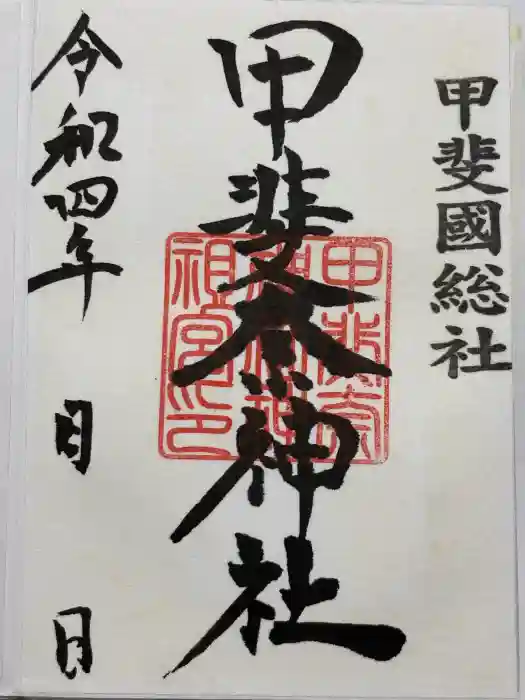 甲斐國総社
甲斐奈神社
令和四年 月 日
甲斐奈
祖宮印